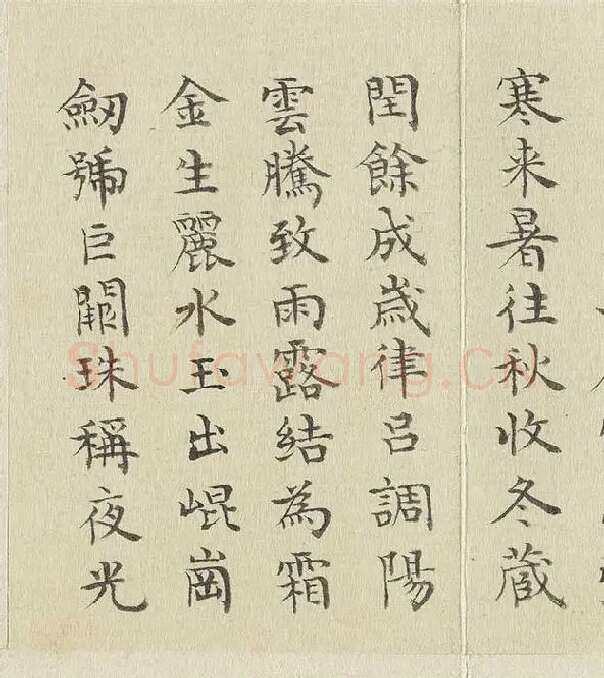 寒来暑往秋收冬蔵
閏餘成歳律呂調陽
雲騰致雨露結為霜
金生麗水玉出崐崗
劒號巨闕珠稱夜光
Shufawang.cn